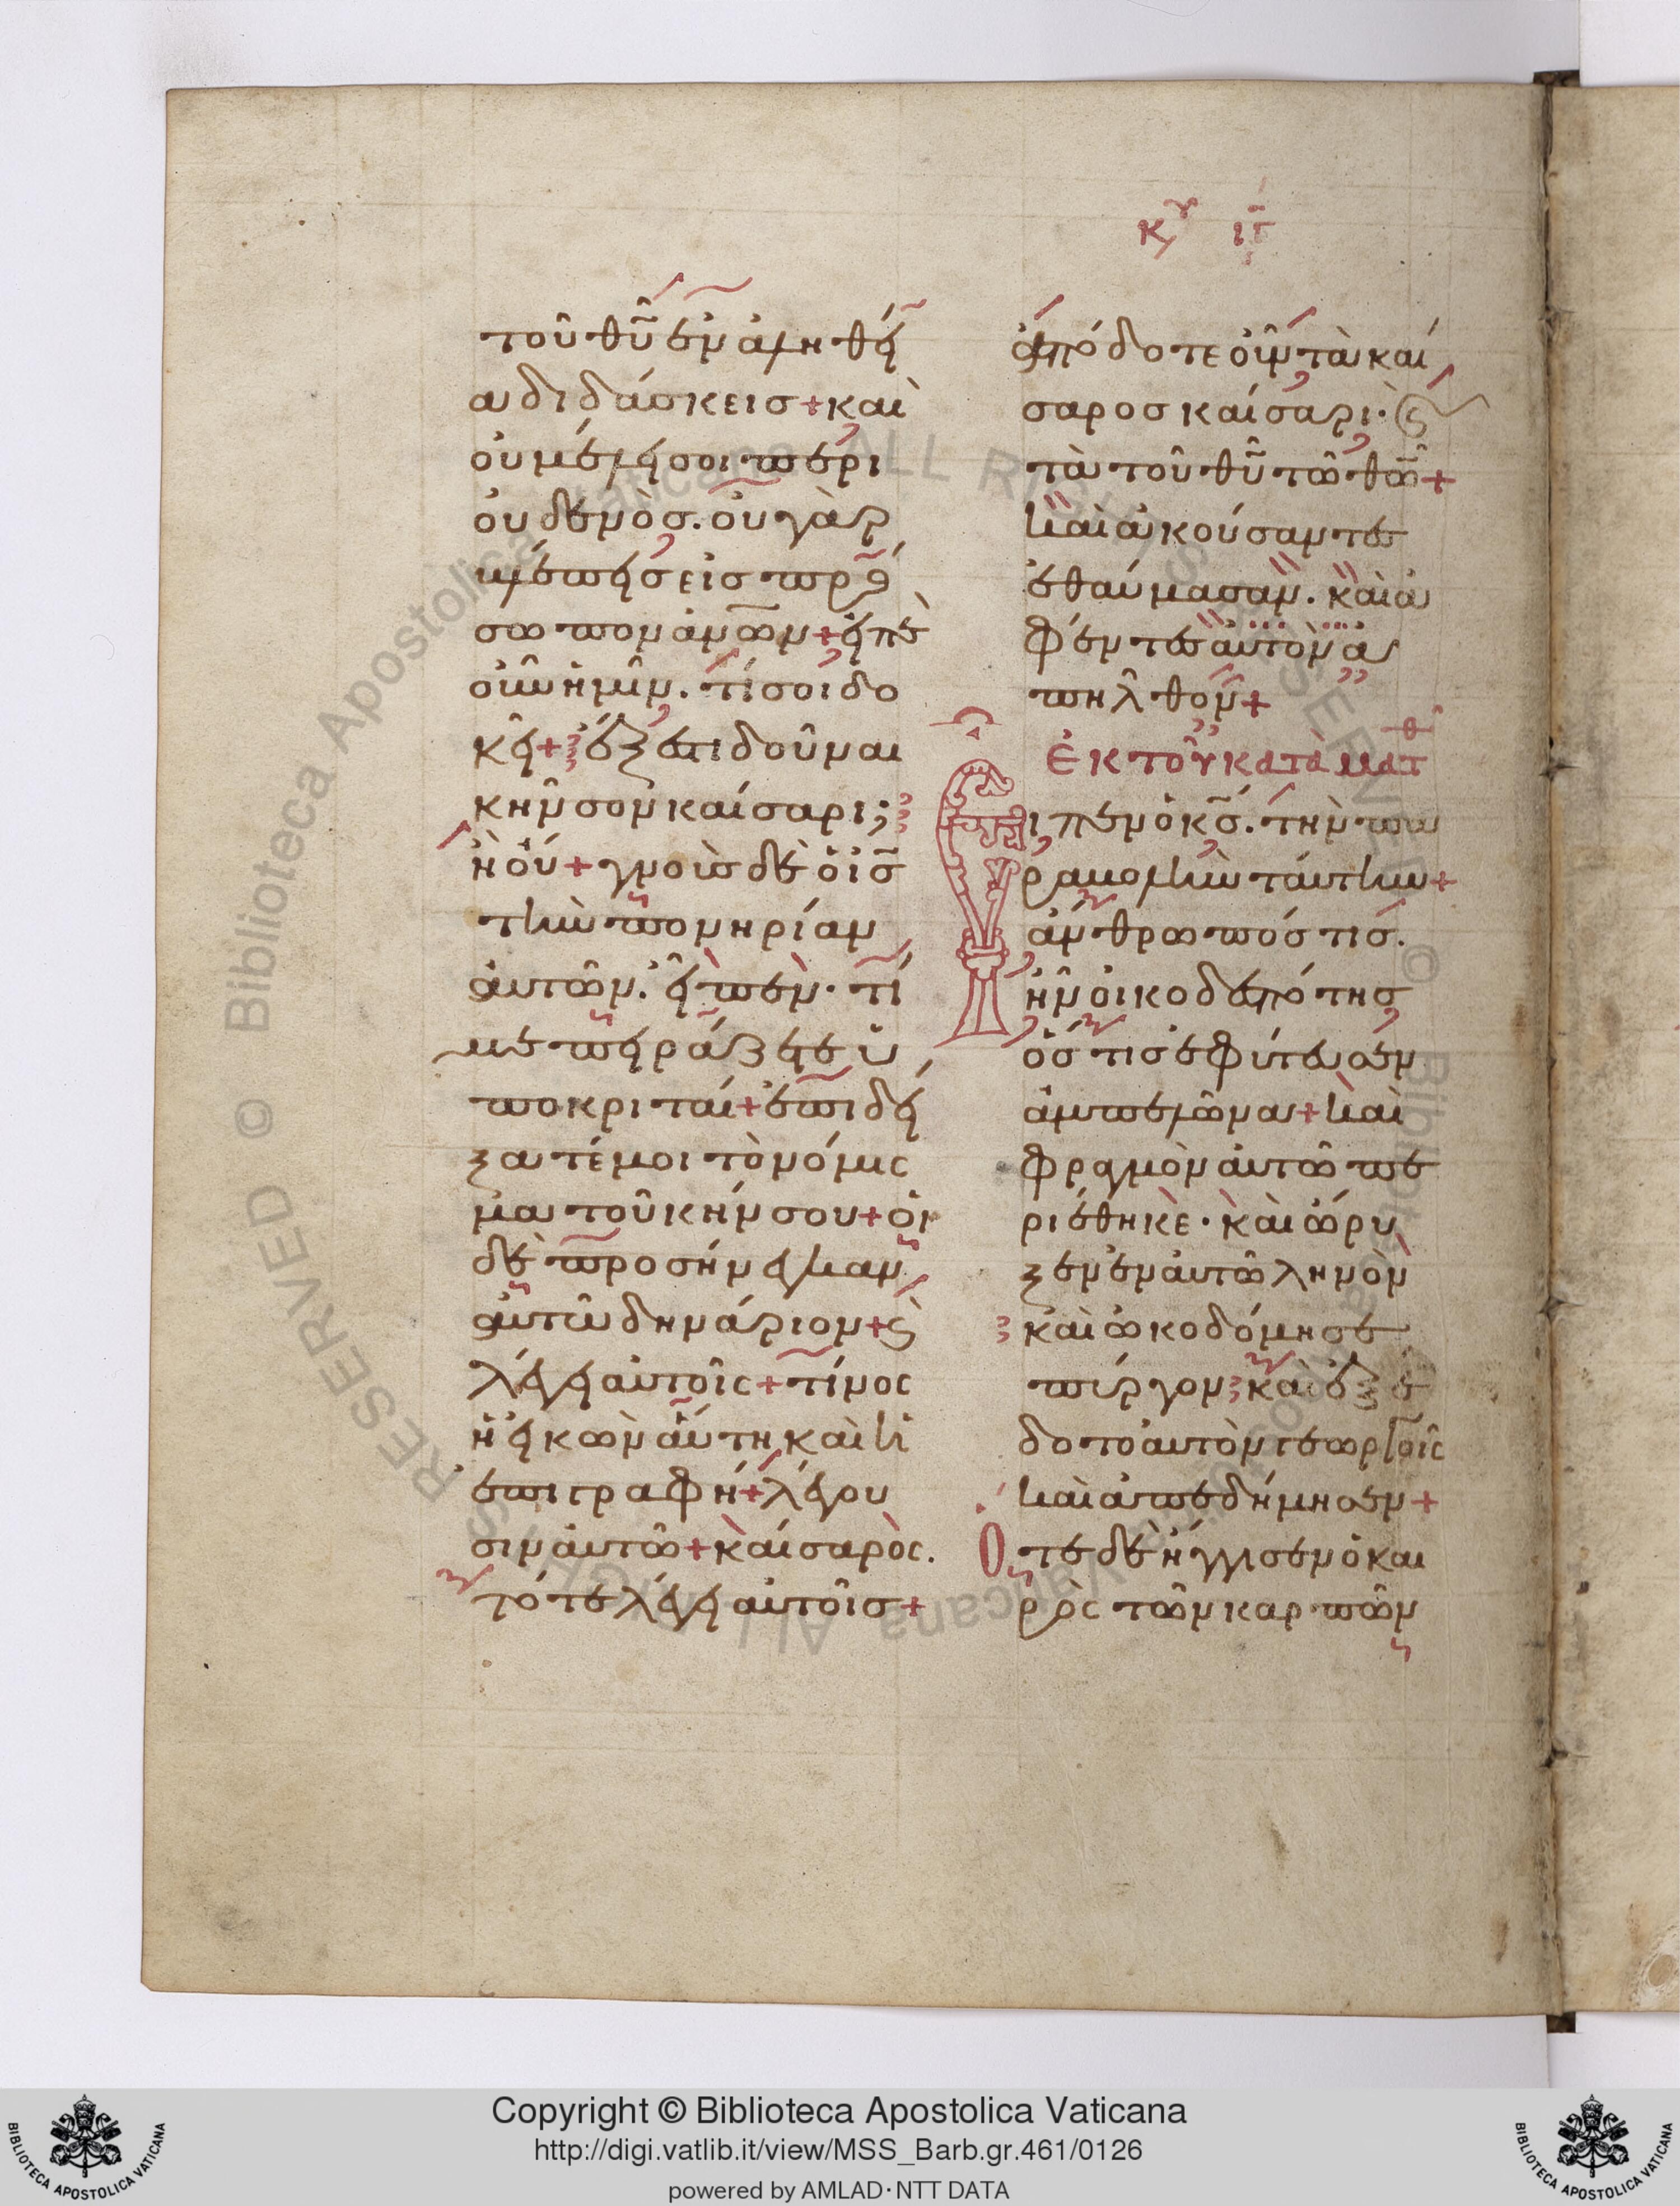 κυ ιγ
τοῦ θῦ ἐν ἀληθεί
α διδάσκεισ + καὶ
οὐ μέλει σοι περι
οὐδενὸσ. οὐ γὰρ
βλέπεισ εἰσ πρό
σωπον ἀνων + εἰπὲ
οὖν ἡμῖν. τί σοι δο
κεῖ + ἔξεστι δοῦναι
κῆνσον καίσαρι;
ἢ οὔ + γνοὺσ δὲ ὁ ισ
τὴν πονηρίαν
αὐτῶν. εἶπεν. τί
με πειράζετε ὑ
ποκριταί + ἐπιδεί
ξατέ μοι τὸ νόμισ
μα τοῦ κήνσου + οἱ
δὲ προσήνεγκαν
αὐτῶ δηνάριον + ϛ
λέγει αὐτοῖς + τίνος
ἡ εἰκὼν αὕτη καὶ ἡ
ἐπιγραφή + λέγου
σιν αὐτῶ + καίσαρος.
τότε λέγει αὐτοῖσ +
ἀπόδοτε οὖν τὰ καί
σαροσ καίσαρι. ϛ
τὰ τοῦ θῦ τῶ θῶ +
καὶ ἀκούσαντες
ἐθαύμασαν. καὶ ἀ
φέντες αὐτὸν ἀ
πῆλθον +
ἐκ τοῦ κατὰ ματθ
Εἶπεν ὁ κσ. τὴν πα
ραβολὴν ταύτην +
ἄνθρωπόσ τισ.
ἦν οἰκοδεσπότησ
ὅστισ ἐφύτευσεν
ἀμπελῶνα + καὶ
φραγμὸν αὐτῶ πε
ριέθηκε. καὶ ὤρυ
ξεν ἐν αὐτῶ ληνὸν
καὶ ὠκοδόμησε
πύργον καὶ ἐξέ
δοτο αὐτὸν γεωργοῖς
καὶ ἀπεδήμησεν +
Οτε δὲ ἤγγισεν ὁ και
ρὸς τῶν καρπῶν
Copyright © Biblioteca Apostolica Vaticana
http://digi.vatlib.it/view/MSS_Barb.gr.461/0126
powered by AMLAD·NTT DATA